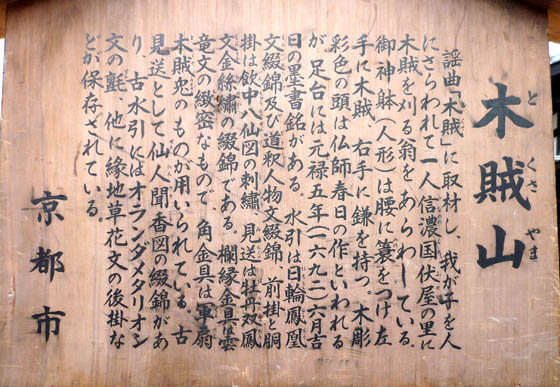 木賊山
とくさやま
謡曲「木賊」に取材し、我が子を人
にさらわれて一人信濃国伏屋の里に
木賊を刈る翁をあらわしている。
御神躰（人形）は腰に簑をつけ左
手に木賊、右手に鎌を持つ。木彫
彩色の頭は仏師春日の作といわれる
が、足台には元禄五年（一六九二）六月吉
日の墨書銘がある。水引は日輪鳳凰
文綴錦及び道釈人物文綴錦、前掛と胴
掛は飲中八仙図の刺繍、見送は牡丹双鳳
文金絲繍の綴錦である。欄縁金具は雲
竜文の緻密なもので、角金具は軍扇
木賊兎のものが用いられている。古
見送として仙人聞香図の綴錦があ
り、古水引にはオランダメタリオン
文の氈、他に縁地草花文の後掛な
どが保存されている。
京都市